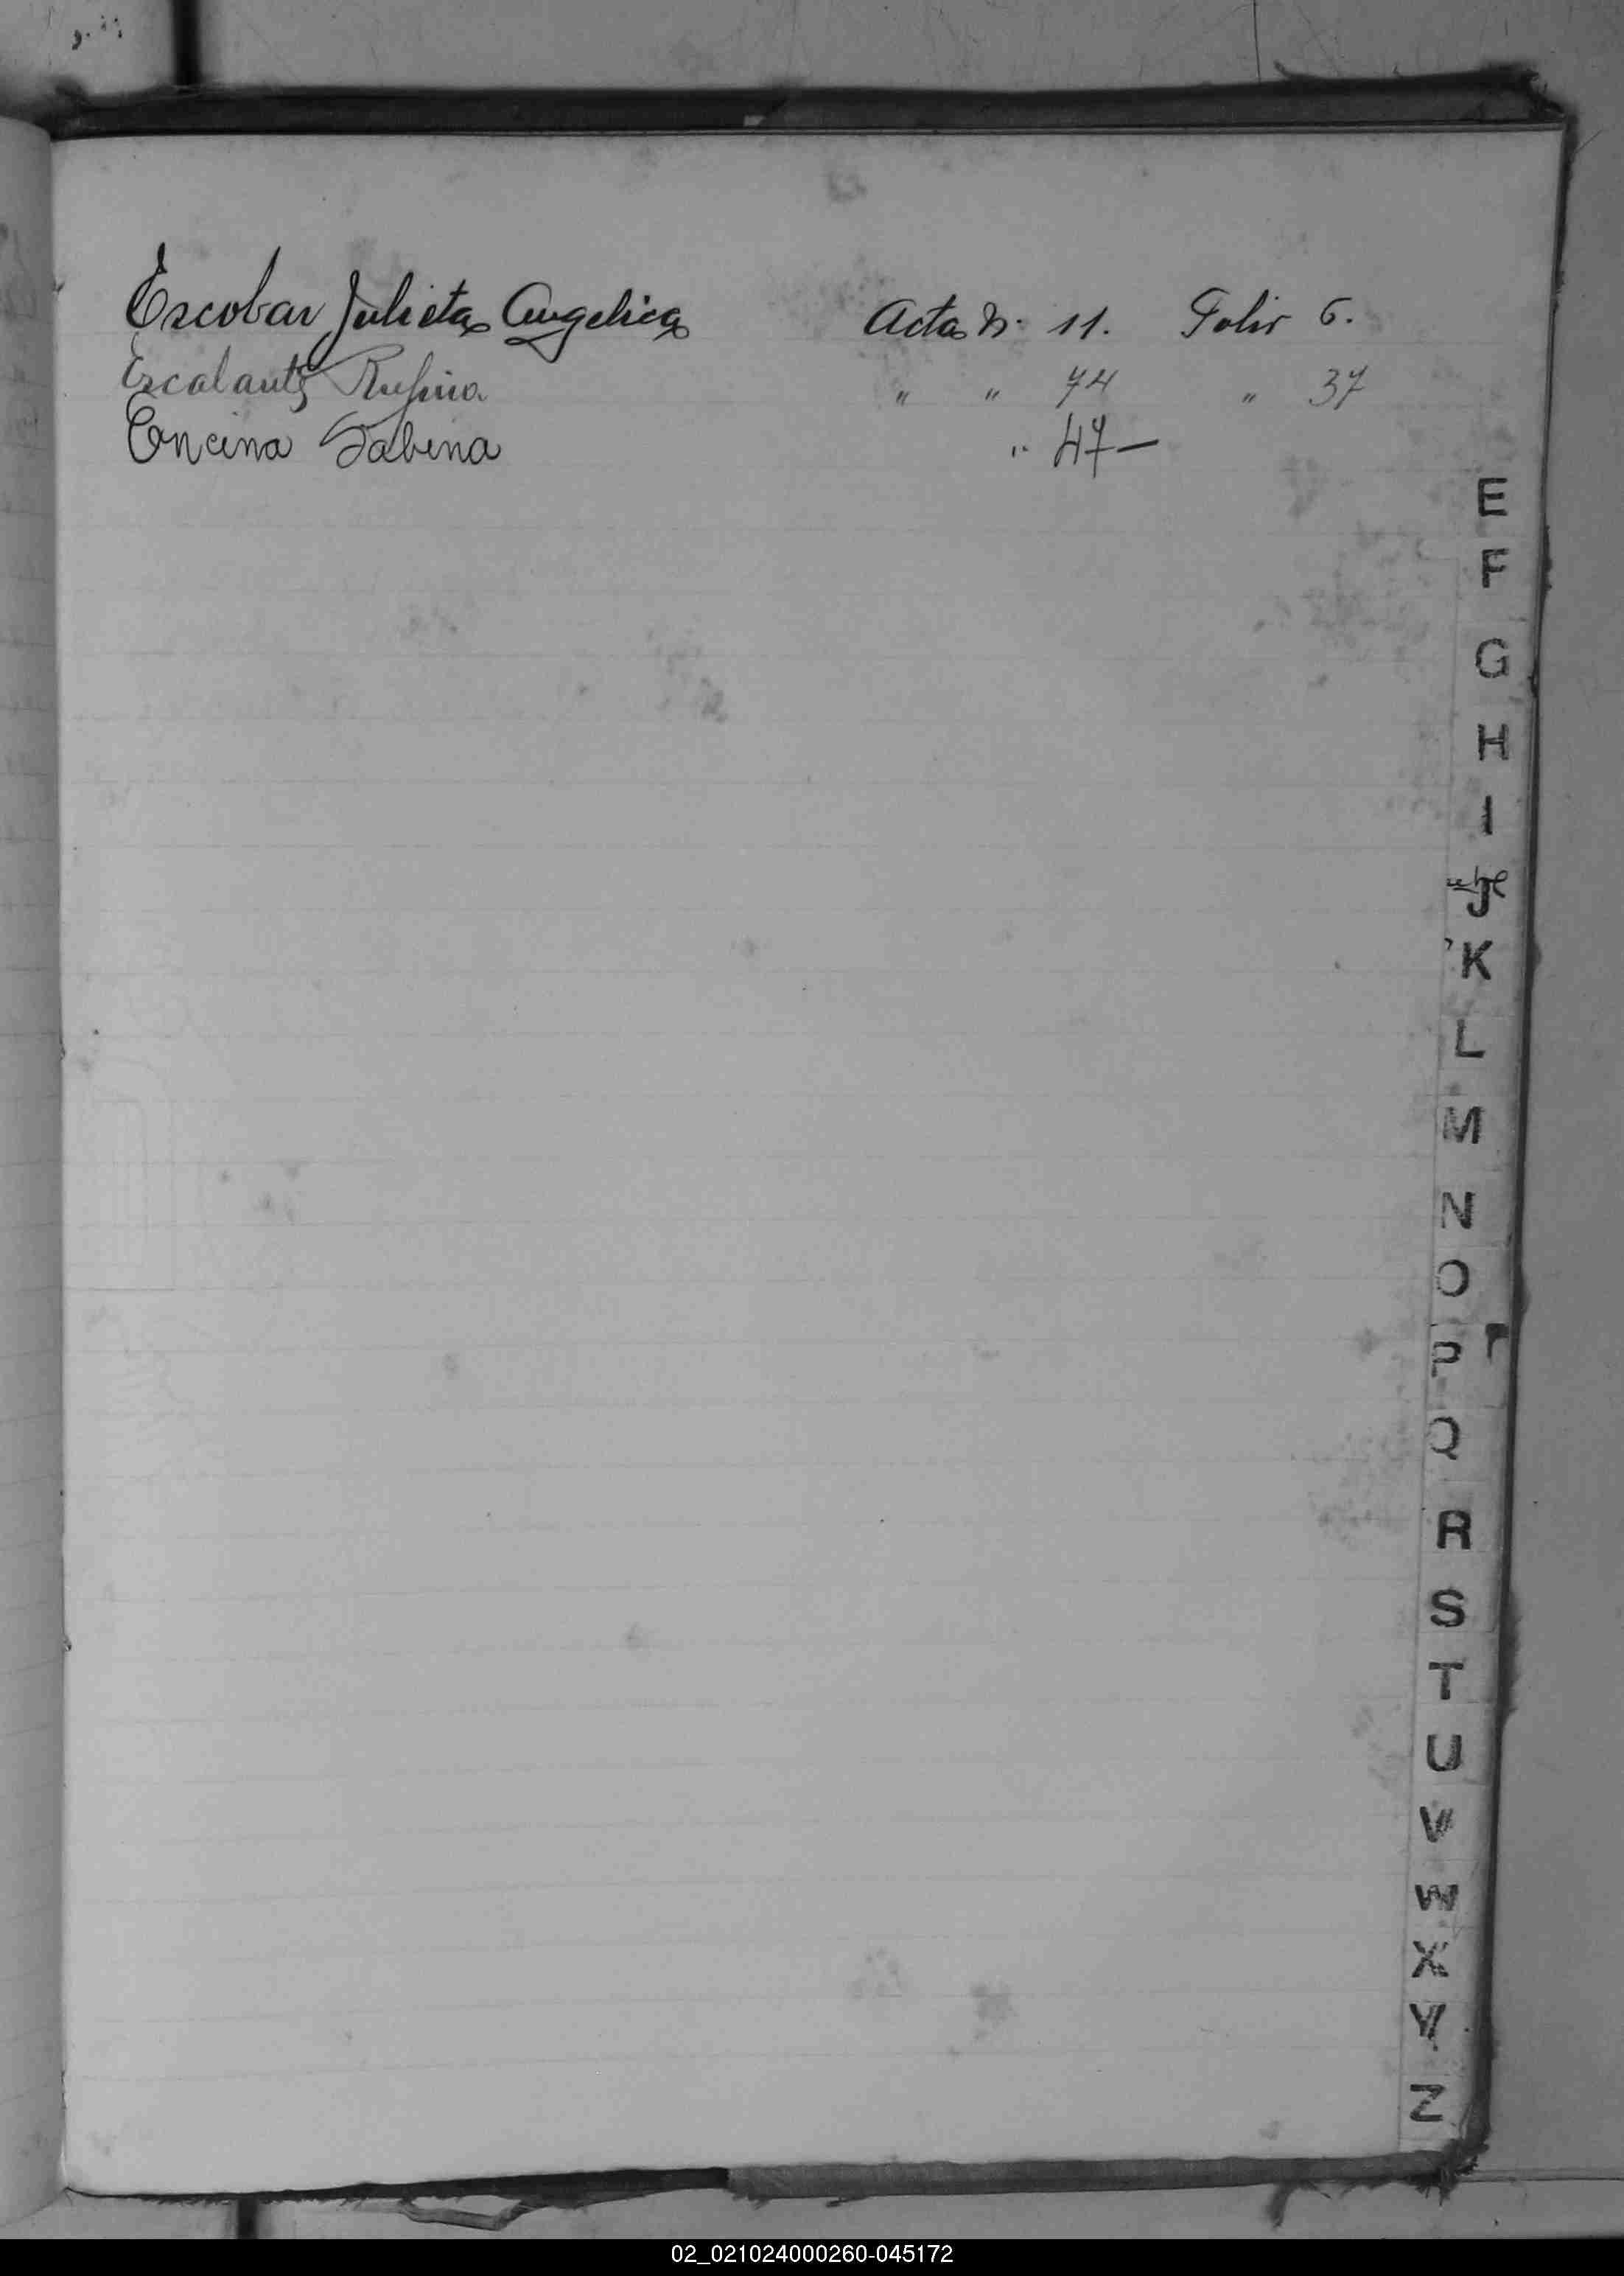 Escobar Julieta Angelica Acta N. 11. Folio 6.
Escalante Rufino " " 74 " 37
Encina Sabina " 47—
E
F
G
H
I
J
K
L
M
N
O
P
Q
R
S
T
U
V
W
X
Y
Z
02_021024000260-045172